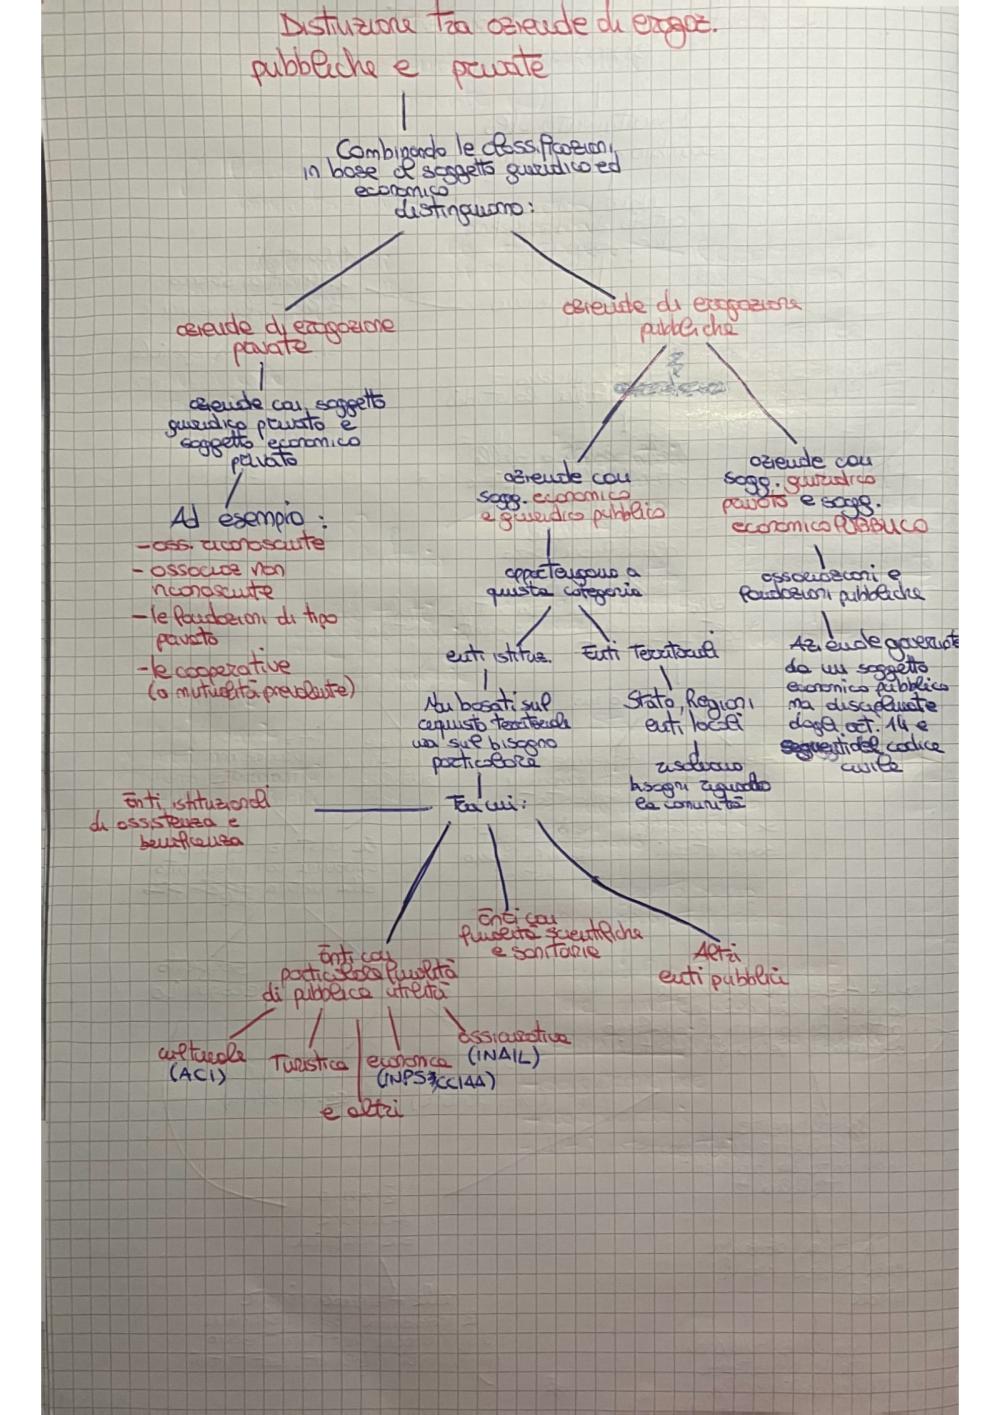 Distinzione tra aziende di erogaz.
pubbliche e private
Combinando le classificazioni
in base al soggetto giuridico ed
economico
distinguiamo:
aziende di erogazione
private
aziende con soggetto
giuridico privato e
soggetto economico
privato
Ad esempio:
- ass. riconosciute
- associaz non
riconosciute
- le fondazioni di tipo
privato
- le cooperative
(a mutualità prevalente)
aziende di erogazione
pubbliche
aziende con
sogg. economico
e giuridico pubblico
appartengono a
questa categoria
enti istituz.
Enti Territoriali
Stato, Regioni,
enti locali
risolvono
bisogni riguardo
la comunità
sul
territoriale
ma sul bisogno
particolare
Tra cui:
Enti istituzionali
di assistenza e
beneficenza
Enti con
particolare finalità
di pubblica utilità
culturale
(ACI)
Turistica
economica
(INPS CCIAA)
assicurativa
(INAIL)
e altri
Enti con
finalità scientifiche
e sanitarie
Altri
enti pubblici
aziende con
sogg. giuridico
privato e sogg.
economico PUBBLICO
associazioni e
fondazioni pubbliche
Aziende governate
da un soggetto
economico pubblico
ma disciplinate
dagli art. 14 e
seguenti del codice
civile